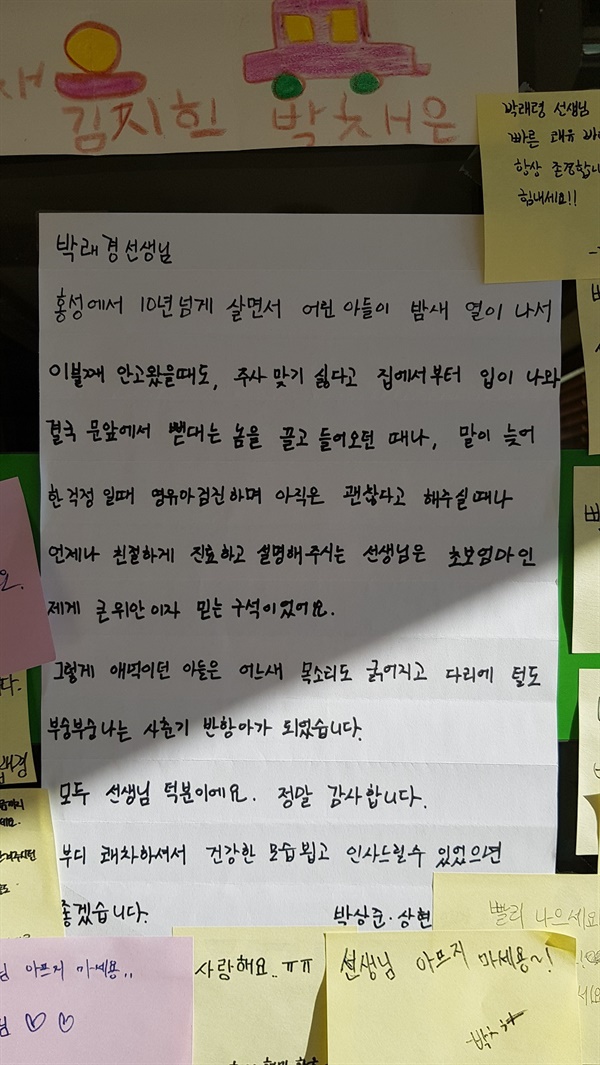 재
김지흰 박채은
박래경 선생님
빠른 쾌유 바
항상 존경합니
힘내세요!!
박래경선생님
홍성에서 10년넘게 살면서 어린 아들이 밤새 열이 나서
이불째 안고왔을때도, 주사 맞기 싫다고 집에서부터 입이 나와
결국 문앞에서 뻗대는 놈을 끌고 들어오던 때나, 말이 늦어
한걱정 일때 영유아검진하며 아직은 괜찮다고 해주실때나
언제나 친절하게 진료하고 설명해주시는 선생님은 초보엄마인
제게 큰위안이자 믿는구석이었어요.
그렇게 애먹이던 아들은 어느새 목소리도 굵어지고 다리에 털도
부숭부숭나는 사춘기 반항아가 되었습니다.
모두 선생님 덕분이에요. 정말 감사합니다.
부디 쾌차하셔서 건강한 모습뵙고 인사드릴수 있었으면
좋겠습니다. 박상준·상현
빨리 나으세요
님 아프지 마세용..
님 ♡ ♡
사랑해요..ㅠㅠ
선생님 아프지 마세용~!